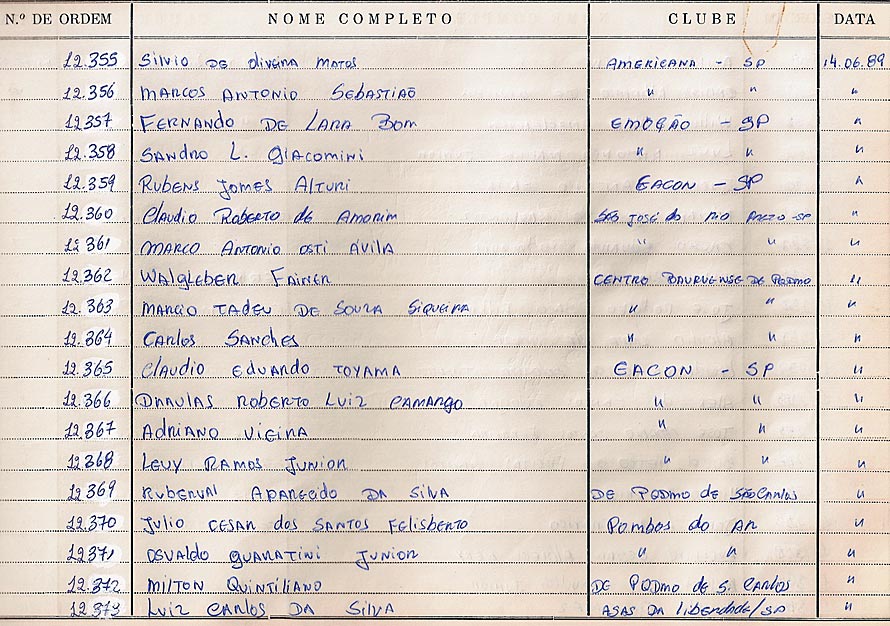 N.º DE ORDEM NOME COMPLETO CLUBE DATA
12.355 Silvio DE Oliveira MATOS AMERICANA - SP 14.06.89
12.356 MARCOS ANTONIO SEBASTIAÕ " " "
12.357 FERNANDO DE LARA BOM EMOÇÃO - SP "
12.358 SANDRO L. GIACOMINI " " "
12.359 RUBENS JOMES ALTURI EACON - SP "
12.360 Claudio Roberto de AMORIM SÃO JOSÉ do RIO PRETO - SP "
12.361 MARCO ANTONIO OSTI ÁVILA " " "
12.362 WALGLEBER FAINER CENTRO BAURUENSE DE PQDMO "
12.363 MARCIO TADEU DE SOUZA SIQUEIRA " " "
12.364 CARLOS SANCHES " " "
12.365 Claudio EDUARDO TOYAMA EACON - SP "
12.366 DRAULAS ROBERTO LUIZ CAMARGO " " "
12.367 ADRIANO VIEIRA " " "
12.368 LEVY RAMOS JUNIOR " " "
12.369 RUBERVAL APARECIDO DA SILVA DE PQDMO de SÃO CARLOS "
12.370 JULIO CESAR dos SANTOS FELISBERTO Pombos do AR "
12.371 OSVALDO GUARATINI JUNIOR " " "
12.372 MILTON QUINTILIANO DE PQDMO DE S. CARLOS "
12.373 LUIZ CARLOS DA SILVA ASAS DA liberdade/SP "